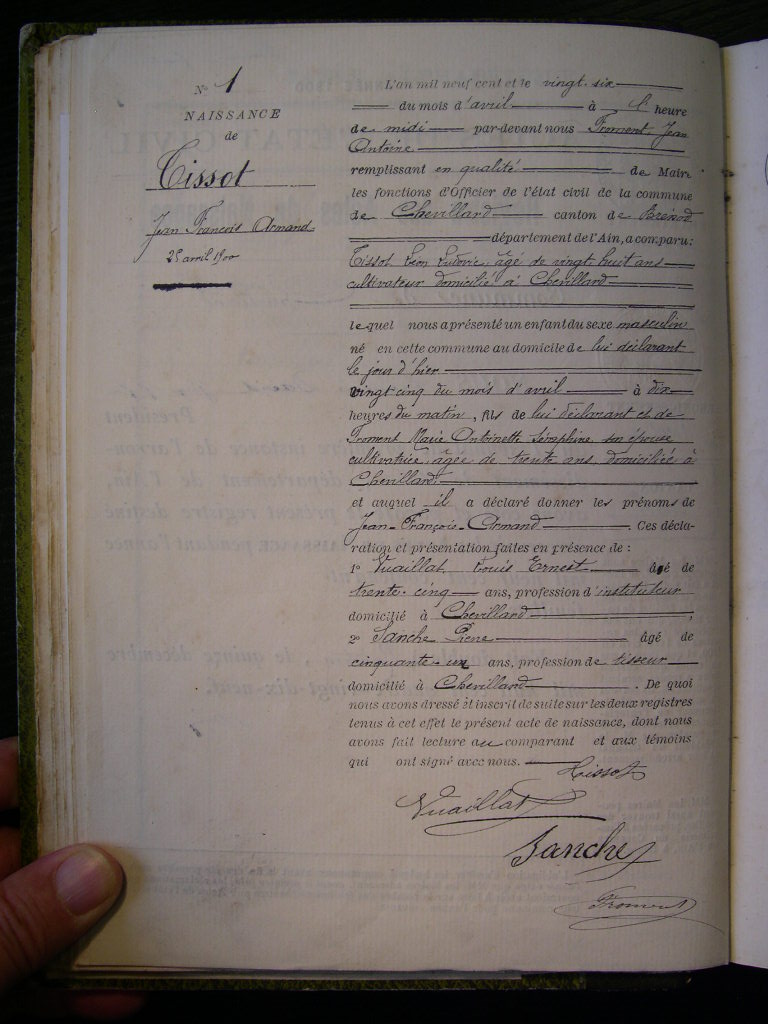 N° 1
NAISSANCE
de
Tissot
Jean François Armand
25 avril 1900
L'an mil neuf cent et le vingt-six
du mois d'avril à l' heure
de midi par-devant nous Froment Jean
Antoine
remplissant en qualité de Maire
les fonctions d'Officier de l'état civil de la commune
de Chevillard canton de Brénod
département de l'Ain, a comparu:
Tissot Léon Ludovic âgé de vingt huit ans
cultivateur domicilié à Chevillard
lequel nous a présenté un enfant du sexe masculin
né en cette commune au domicile de lui déclarant
le jour d'hier
vingt cinq du mois d'avril à dix
heures du matin, fils de lui déclarant et de
Froment Marie Antoinette Séraphine, son épouse
cultivatrice, âgée de trente ans, domiciliée à
Chevillard
et auquel il a déclaré donner les prénoms de
Jean-François-Armand. Ces décla-
ration et présentation faites en présence de :
1° Vuaillat Louis Ernest âgé de
trente-cinq ans, profession d'instituteur
domicilié à Chevillard,
2° Sanche Pierre âgé de
cinquante-un ans, profession de tisseur
domicilié à Chevillard. De quoi
nous avons dressé et inscrit de suite sur les deux registres
tenus à cet effet le présent acte de naissance, dont nous
avons fait lecture au comparant et aux témoins
qui ont signé avec nous.
Tissot
Vuaillat
Sanche
Froment